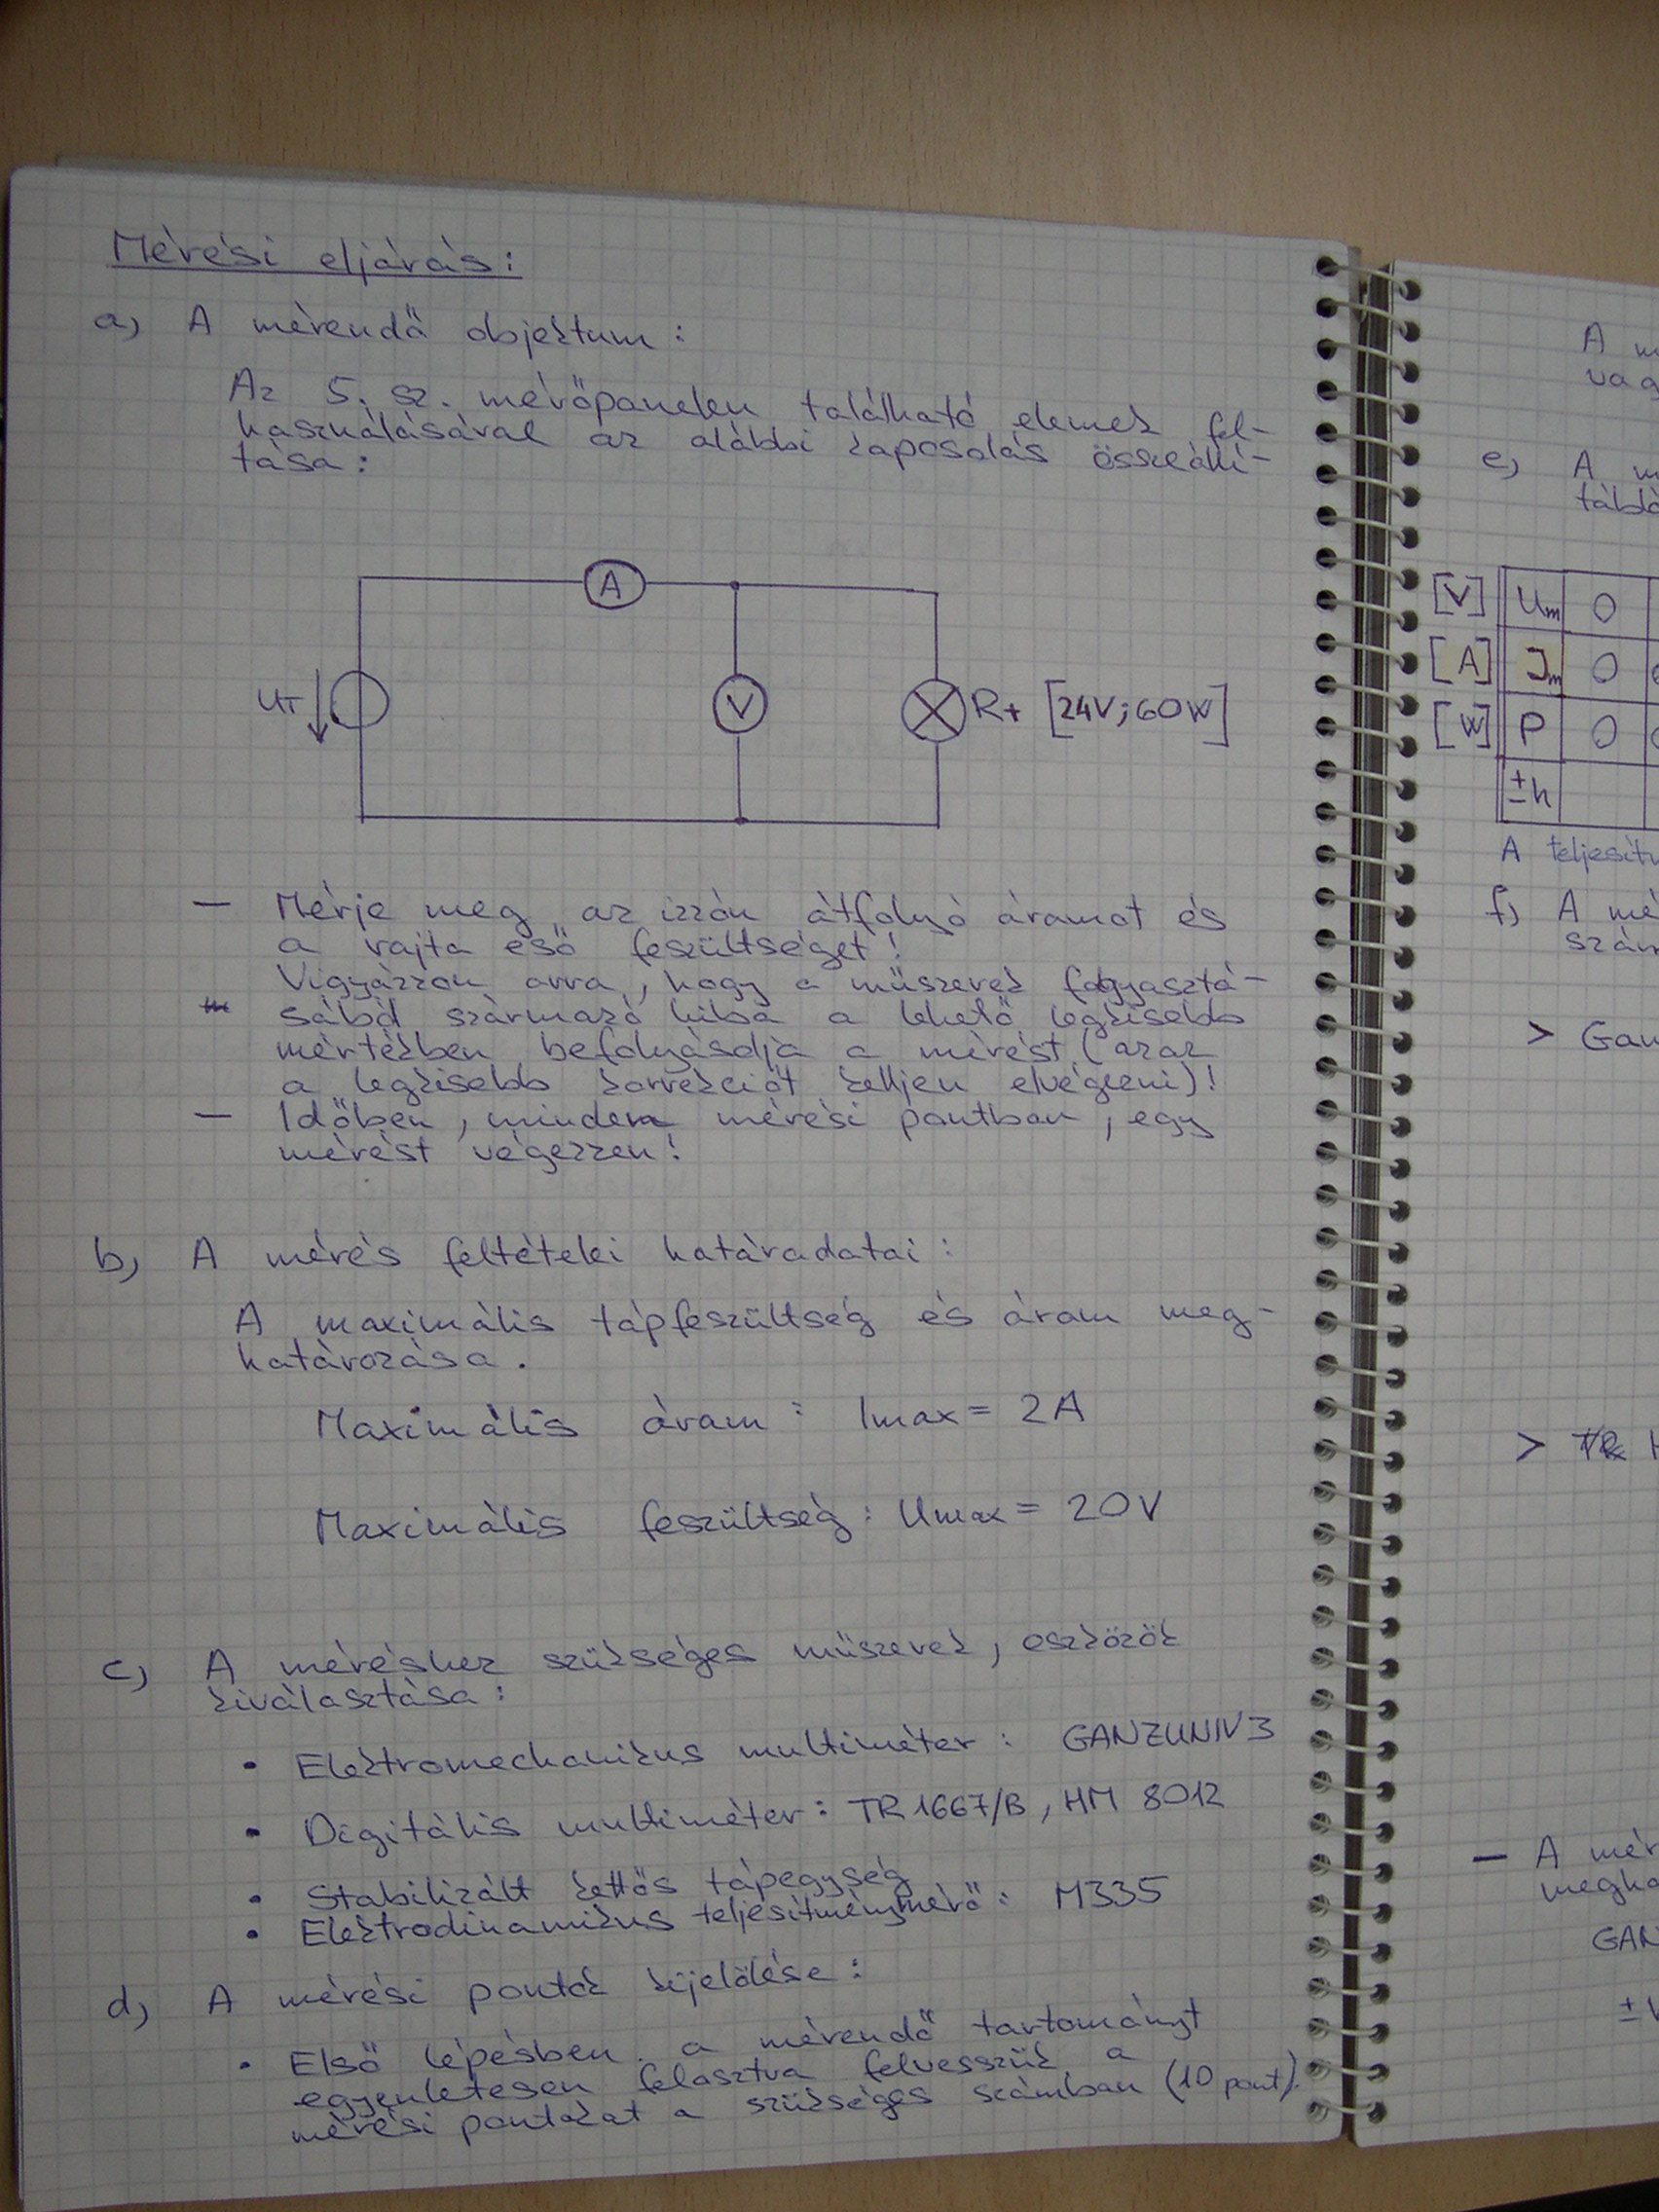 Mérési eljárás:
a) A mérendő objektum:
Az 5. sz. mérőpanelen található elemek fel-
használásával az alábbi kapcsolás összeállí-
tása:
A
UT
V
Rt [24V; 60W]
— Mérje meg az izzón átfolyó áramot és
a rajta eső feszültséget!
Vigyázzon arra, hogy a műszerek fogyasztá-
sából származó hiba a lehető legkisebb
mértékben befolyásolja a mérést (azaz
a legkisebb korrekciót kelljen elvégezni)!
— Időben, minden mérési pontban, egy
mérést végezzen!
b) A mérés feltételei határadatai:
A maximális tápfeszültség és áram meg-
határozása.
Maximális áram: Imax = 2A
Maximális feszültség: Umax = 20V
c) A méréshez szükséges műszerek, eszközök
kiválasztása:
• Elektromechanikus multiméter: GANZUNIV3
• Digitális multiméter: TR1667/B, HM 8012
• Stabilizált kettős tápegység
• Elektrodinamikus teljesítménymérő: M335
d) A mérési pontok kijelölése:
• Első lépésben a mérendő tartományt
egyenletesen felosztva felvesszük a
mérési pontokat a szükséges számban (10 pont).
A m
vag
e) A m
tábla
[V] Um 0
[A] Im 0
[W] P 0
±h
A teljesít
f) A mé
szám
> Gan
>
— A mér
megha
GAN
±